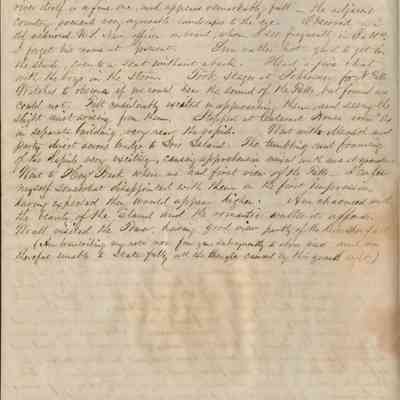 river itself is a fine one, and appears remarkably full — the adjacent
country presents very agreeable landscapes to the eye.
old school officer on board, whom I see frequently in
I forget his name at present. Am rather not glad to get to
the shade, from a seat without a back. Had a fine chat
with the boys in the Stern. Took Stages at for Falls
Watched to observe if we could hear the sound of the Falls, but found we
could not. Felt evidently excited in approaching them, and seeing the
slight mist arising from them. Stopped at House
in separate building, very near the rapids. Went with and
party about across bridge to Goat Island. The tumbling and foaming
of the Rapids very exciting, causing apprehension mixed with awe
Went to Hog's Back where we had first view of the Falls — I confess
myself somewhat disappointed with them on the first impression
having expected they would appear higher. Am charmed with
the beauty of the Island and the romantic walks it affords.
We all visited the Tower, having good view partly of the Horseshoe fall
(Am transcribing my note now four years subsequently to when and am
therefore unable to state fully all the thoughts caused by this grand sight)